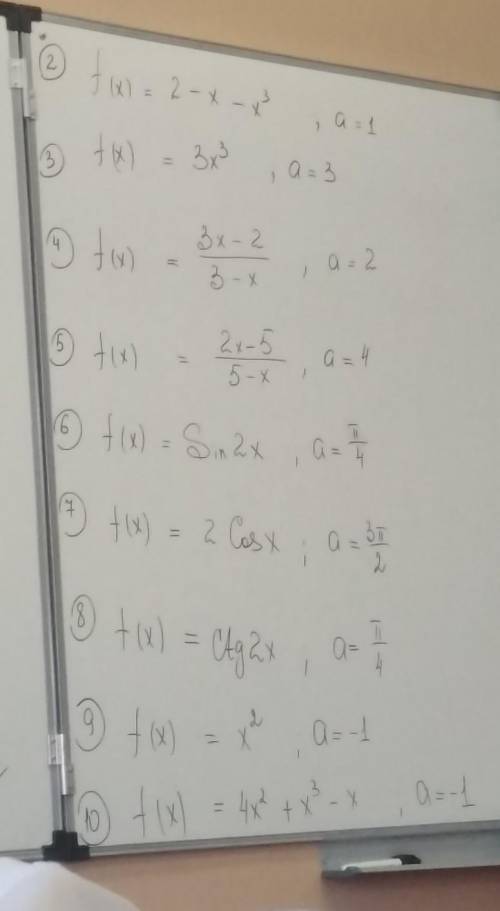 ② f(x) = 2 - x - x³ , a = 1
③ f(x) = 3x³ , a = 3
④ f(x) = (3x - 2)/(3 - x) , a = 2
⑤ f(x) = (2x - 5)/(5 - x) , a = 4
⑥ f(x) = Sin2x , a = π/4
⑦ f(x) = 2 Cosx ; a = 3π/2
⑧ f(x) = Ctg2x , a = π/4
⑨ f(x) = x² , a = -1
⑩ f(x) = 4x² + x³ - x , a = -1